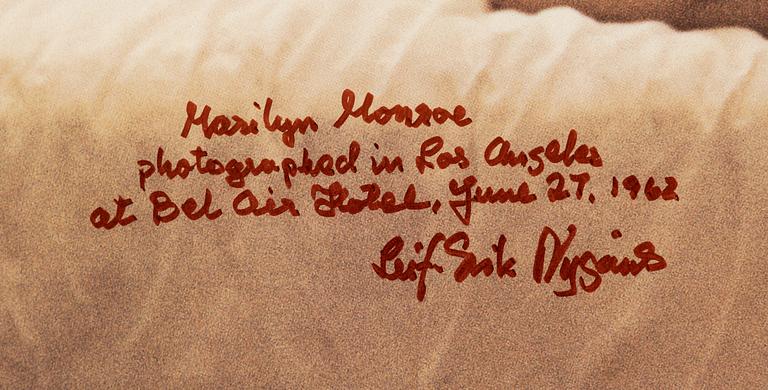 Marilyn Monroe
photographed in Los Angeles
at Bel Air Hotel, June 27, 1962
Leif-Erik Nygårds